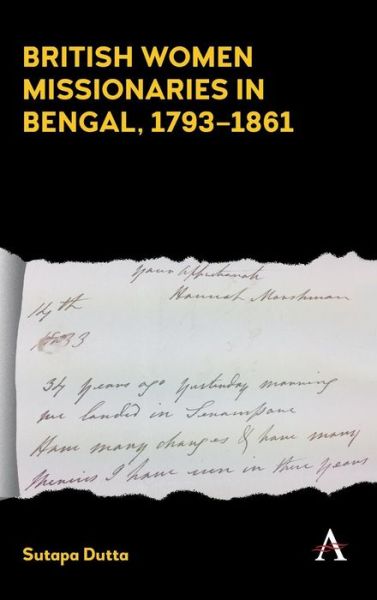 BRITISH WOMEN
MISSIONARIES IN
BENGAL, 1793–1861
your affectionate
Hannah Marshman
14th
1833
34 years ago yesterday morning
we landed in Serampore
Have many changes & have many
I have seen in these years
Sutapa Dutta
A